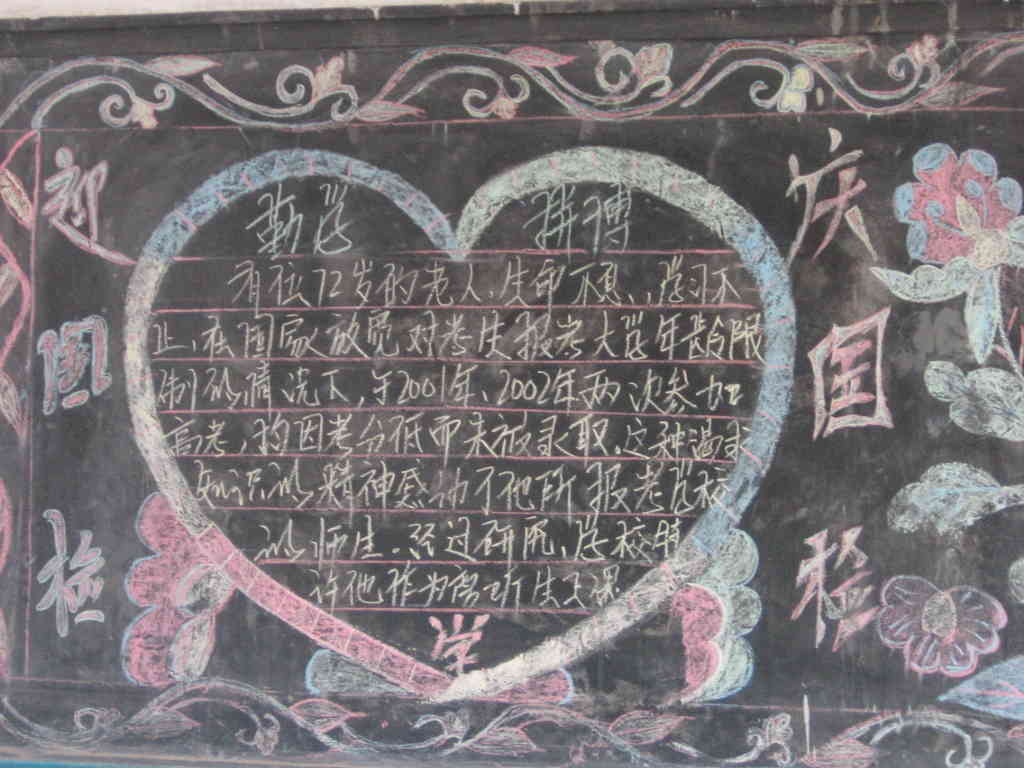 迎国检
勤学 拼博
有位72岁的老人,生命不息,学习不
止,在国家放宽对考生报考大学年龄限
制的情况下,于2001年、2002年两次参加
高考,均因考分低而未被录取,这种渴求
知识的精神感动了他所报考学校
的师生.经过研究,学校特
许他作为旁听生上课
学
庆国